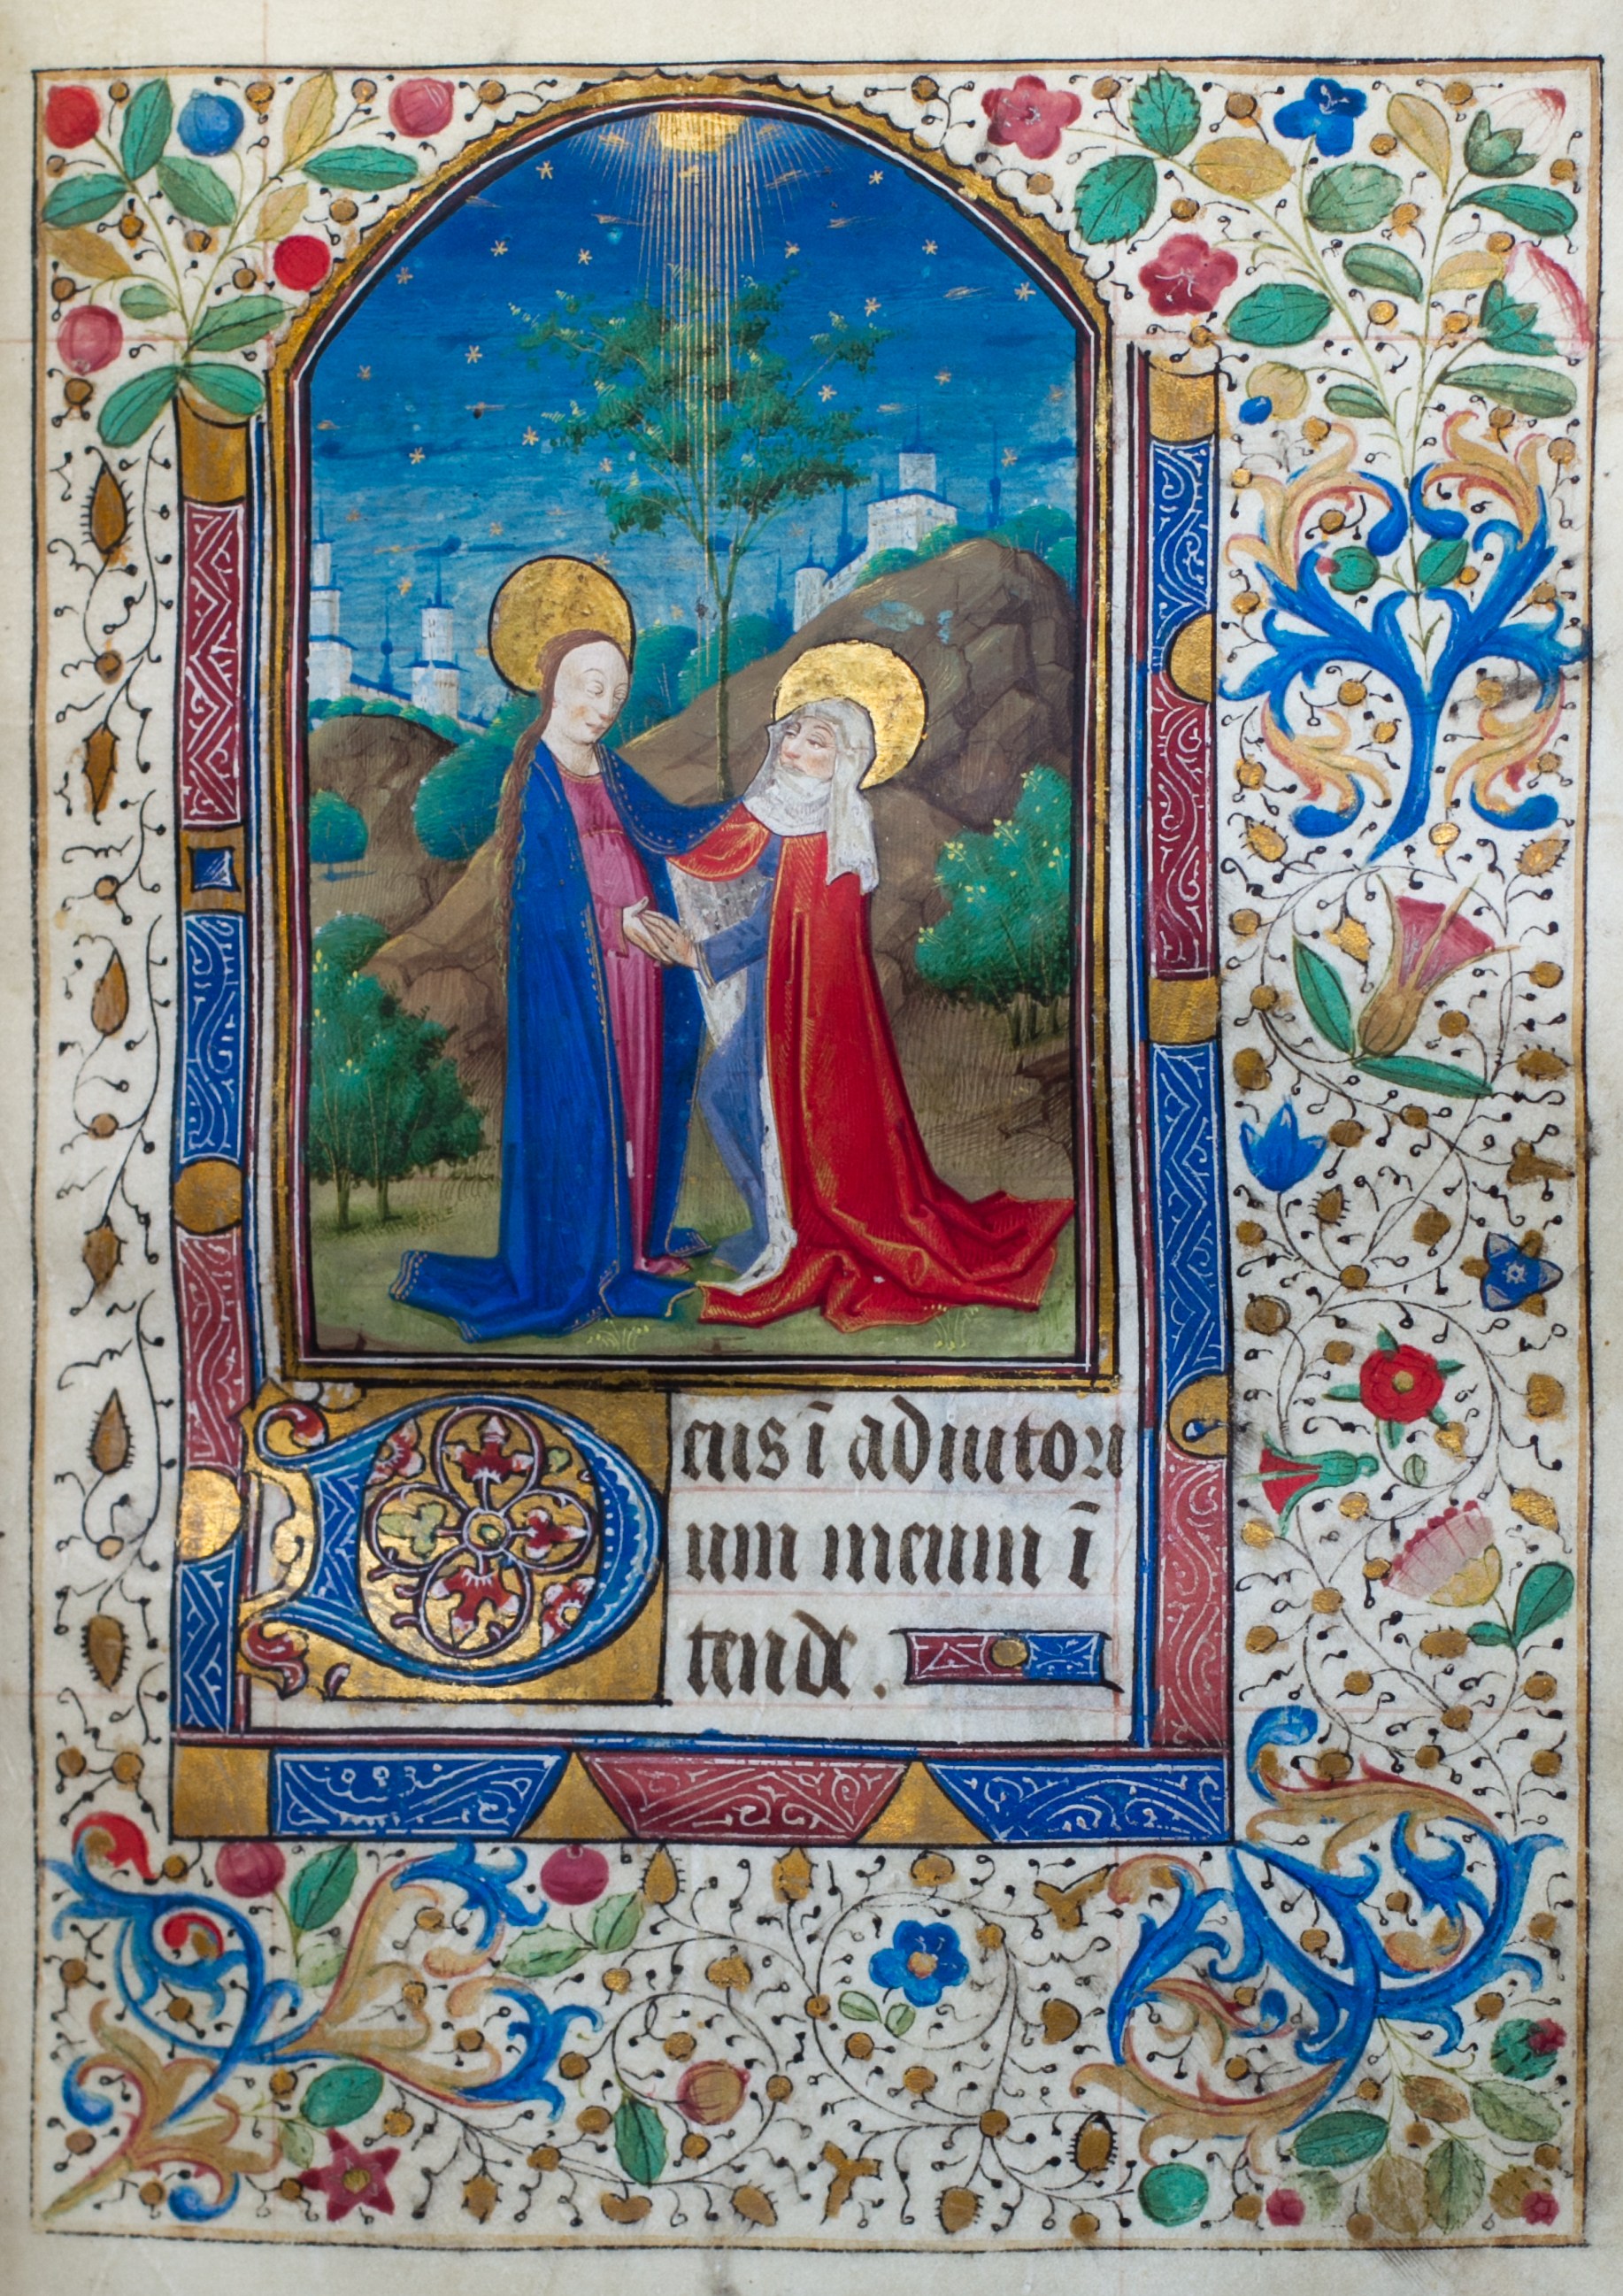 Deus ī adiutori
um meum ī
tende.